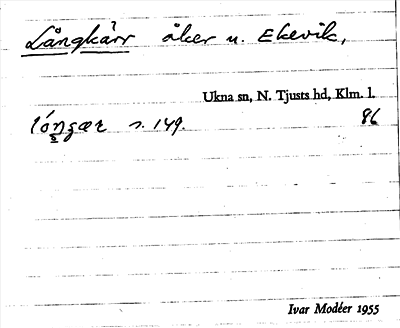 Långkärr åker u. Ekevik,
Ukna sn, N. Tjusts hd, Klm. l.
s. 149. 86
Ivar Modéer 1955